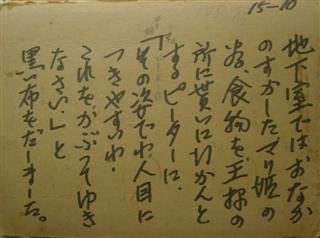 15-10
地下室ではおなか
のすかしたマリ姫の
為、食物を王様の
所に貰いに行かんと
するピーターに、
「その姿では人目に
つきやすいわ・
これをかぶってゆき
なさい」と
黒い布をだしました。